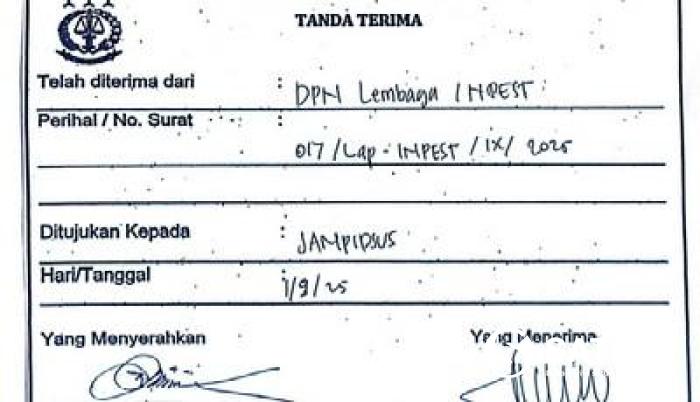 TANDA TERIMA
Telah diterima dari : DPN Lembaga INPEST
Perihal / No. Surat :
017 / Lap - INPEST / IX / 2025
Ditujukan Kepada : JAMPIDSUS
Hari/Tanggal : 1/9/25
Yang Menyerahkan Yang Menerima